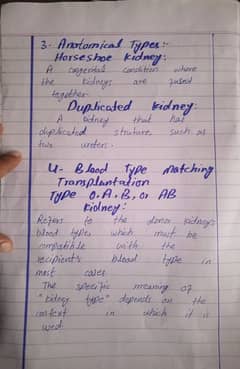 3- Anatomical Types:-
Horseshoe Kidney:
A congenital condition where
the kidneys are fused
together.
Duplicated Kidney:
A kidney that has
duplicated struture, such as
two ureters.
4- Blood Type Matching
Transplantation
Type O.A.B, or AB
Kidney:
Refers to the donor kidney's
blood type, which must be
compatible with the
recipient's blood type in
most cases
The specific meaning of
"kidney type" depends on the
context in which it is
used.